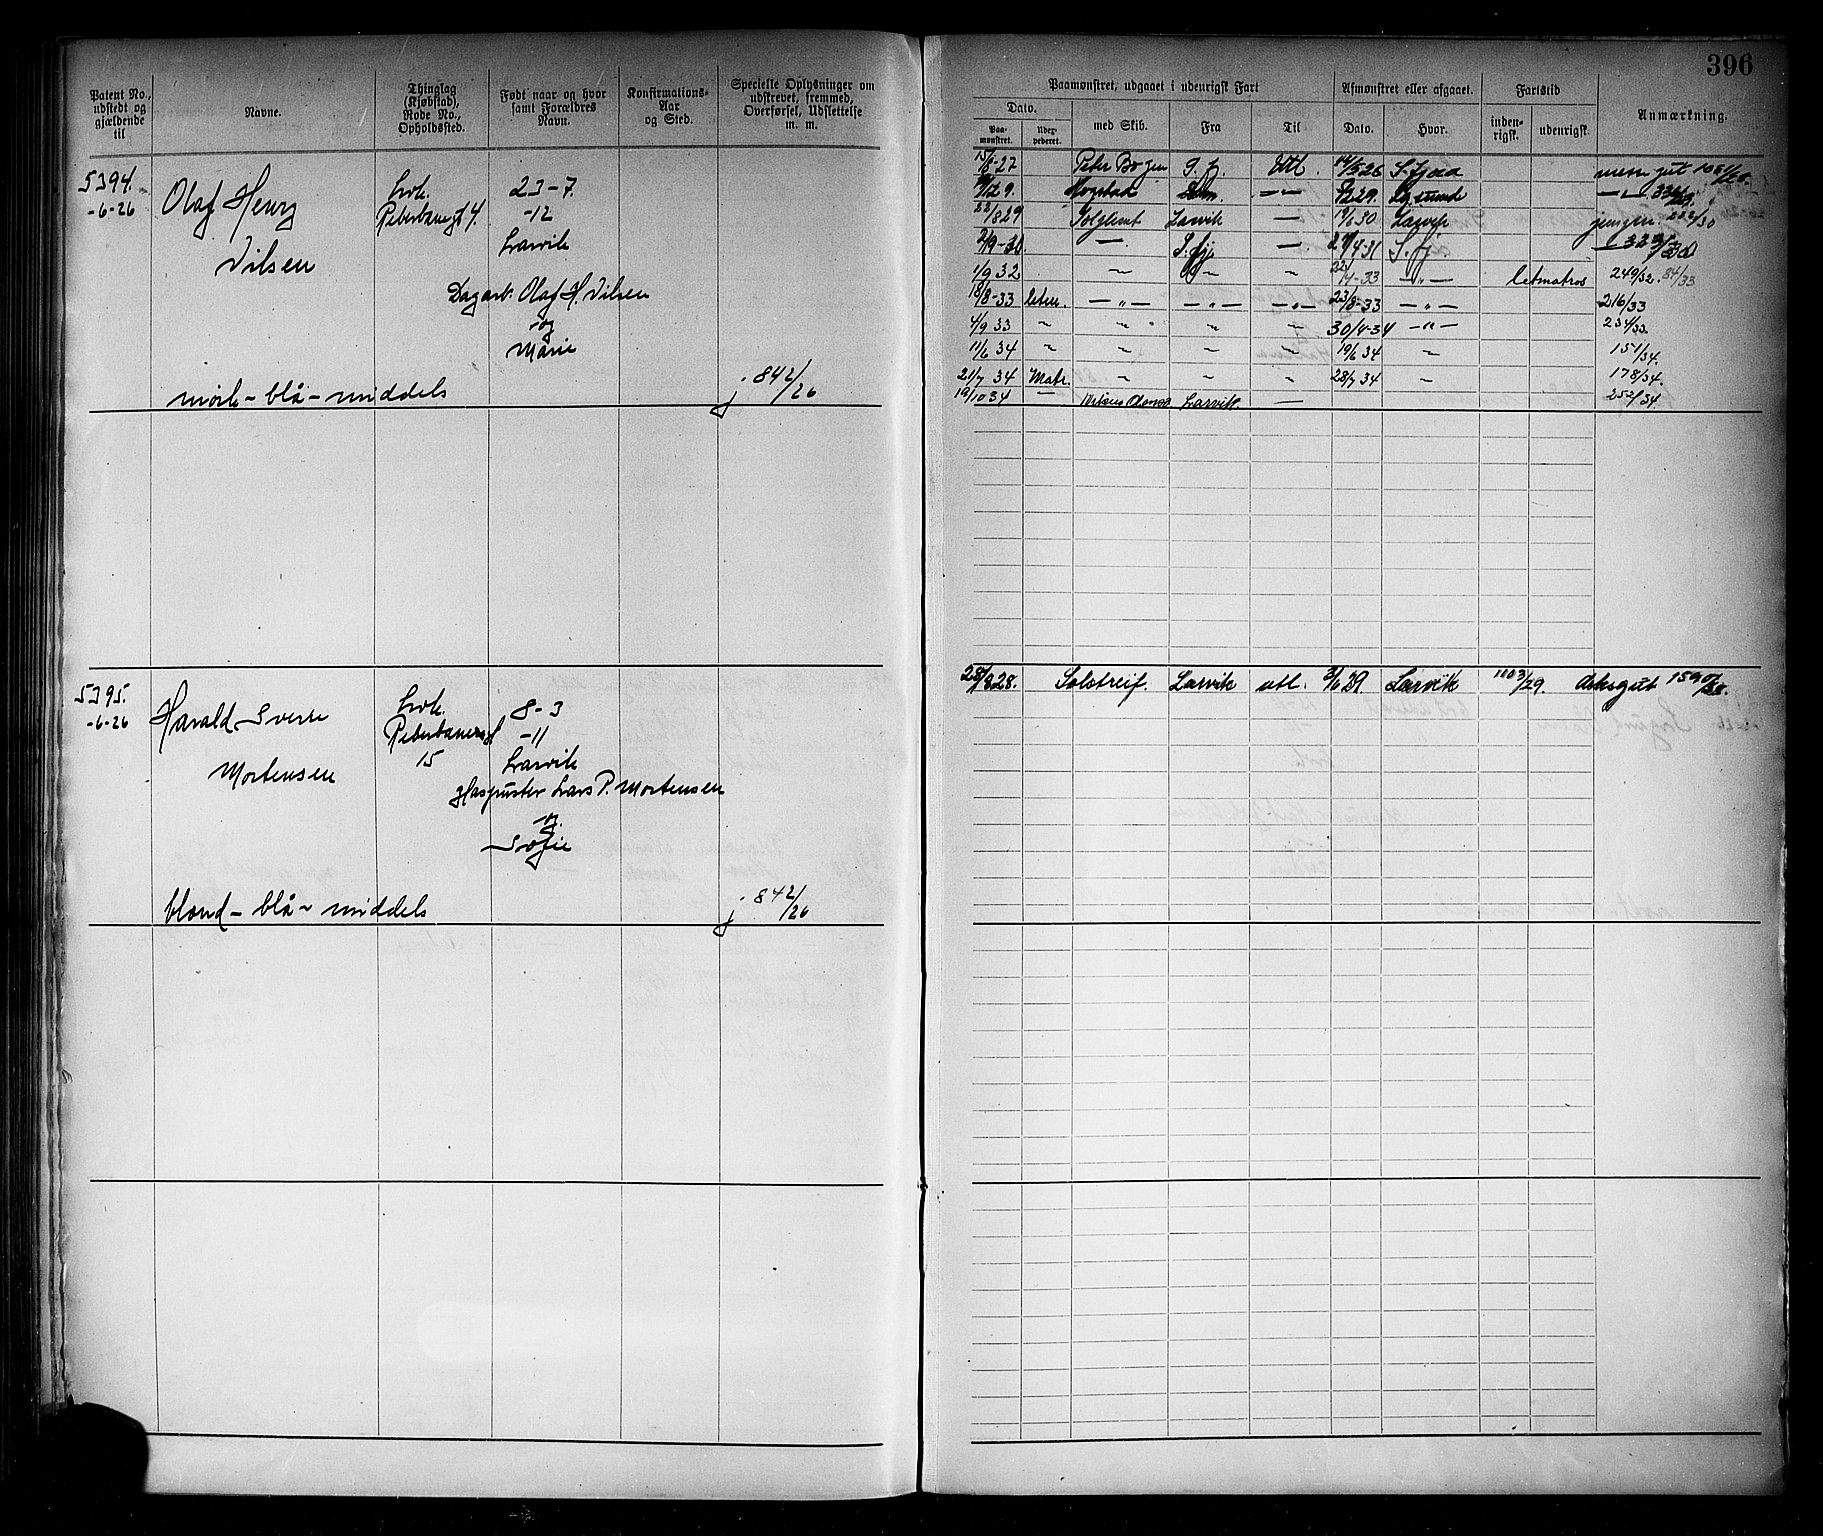 396
Patent No., udstedt og gjældende til
Navne.
Thinglag (Kjøbstad), Rode No., Opholdssted.
Født naar og hvor samt Forældres Navn.
Konfirmations-Aar og Sted.
Specielle Oplysninger om udskrevet, fremmed, Overførsel, Udslettelse m. m.
Paamønstret, udgaaet i udenrigsk Fart
Afmønstret eller afgaaet.
Fartstid
Anmærkning.
Dato.
Paamønstret.
med Skib.
Fra
Til
Dato.
Hvor.
indenrigsk.
udenrigsk.
5394.
-6-26
Olaf Henry
Nilsen
Lvk.
23-7
-12
Larvik
Dagarb. Olaf H. Nilsen
og
Marie
mørk - blå - middels
j. 842/26
15/6-27 Peter Bogen S. fj. Utl.
22/8 29 Solglimt Larvik — 19/6 30 Larvik
2/9-30 — S. fj. — 27/4-31 S. fj.
1/9 32 ~ ~ ~ 22/4-33 -"- letmatros 249/32. 84/33
18/8-33 letm. -"- -"- -"- 23/8-33 -"- 216/33
4/9 33 ~ ~ ~ ~ 30/4-34 -"- 234/33.
11/6 34 ~ ~ ~ ~ 19/6 34 ~ 151/34.
21/7 34 Matr. ~ ~ ~ 28/7 34 ~ 178/34.
19/10 34 — Larvik. — 252/34.
5395.
-6-26
Harald Sverre
Mortensen
Lvk.
15
8-3
-11
Larvik
Lars P. Mortensen
og
Sofie
blond - blå - middels
j. 842/26
28/8 28. Solstreif. Larvik utl. 3/6 29 Larvik 1103/29. dæksgut